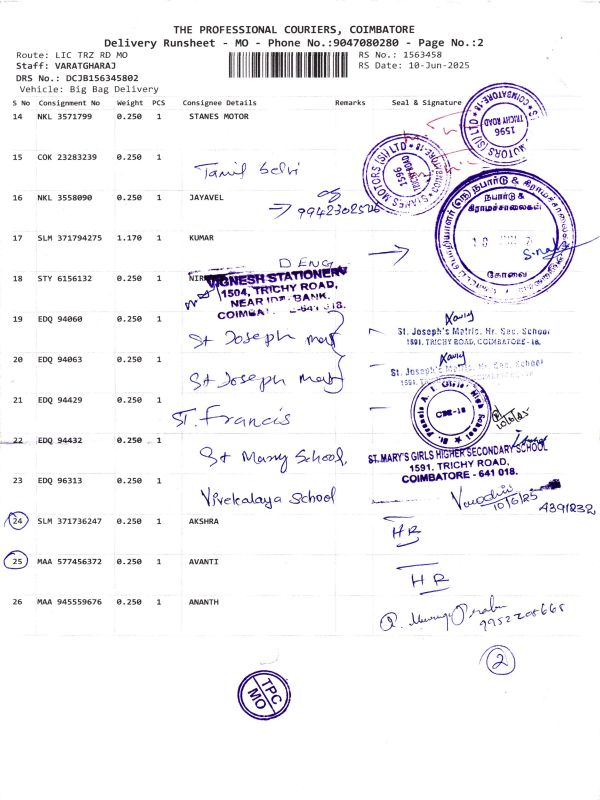 THE PROFESSIONAL COURIERS, COIMBATORE
Delivery Runsheet - MO - Phone No.:9047080280 - Page No.:2
Route: LIC TRZ RD MO
RS No.: 1563458
Staff: VARATGHARAJ
RS Date: 10-Jun-2025
DRS No.: DCJB156345802
Vehicle: Big Bag Delivery
S No Consignment No Weight PCS Consignee Details Remarks Seal & Signature
14 NKL 3571799 0.250 1 STANES MOTOR
MOTORS (SI) LTD
1596
TRICHY ROAD
COIMBATORE-18
15 COK 23283239 0.250 1 Tamil Selvi
STANES MOTORS (SI) LTD
1596
TRICHY ROAD
16 NKL 3558090 0.250 1 JAYAVEL
9942302526
17 SLM 371794275 1.170 1 KUMAR
நபார்டு &
கிராமச்சாலைகள்
கோவை
18 STY 6156132 0.250 1
VIGNESH STATIONERY
1504, TRICHY ROAD,
NEAR IDBI BANK,
19 EDQ 94060 0.250 1 St Joseph mat
St. Joseph's Matric. Hr. Sec. School
1591, TRICHY ROAD, COIMBATORE - 18.
20 EDQ 94063 0.250 1 St Joseph mat
St. Joseph's Matric. Hr. Sec. School
21 EDQ 94429 0.250 1 ST. Francis
CBE-18
10/6/25
22 EDQ 94432 0.250 1 St Mary School,
ST. MARY'S GIRLS HIGHER SECONDARY SCHOOL
1591, TRICHY ROAD,
COIMBATORE - 641 018.
23 EDQ 96313 0.250 1 Vivekalaya School
10/6/25
24 SLM 371736247 0.250 1 AKSHRA
HR
25 MAA 577456372 0.250 1 AVANTI
HR
26 MAA 945559676 0.250 1 ANANTH
9952208665
2
TPC
MO